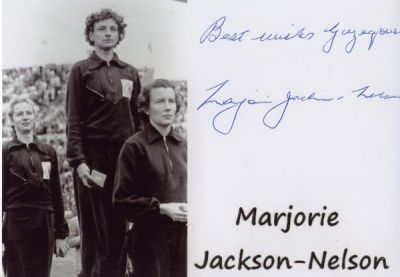 Best wishes Grzegorz
Marjorie Jackson-Nelson
Marjorie
Jackson-Nelson